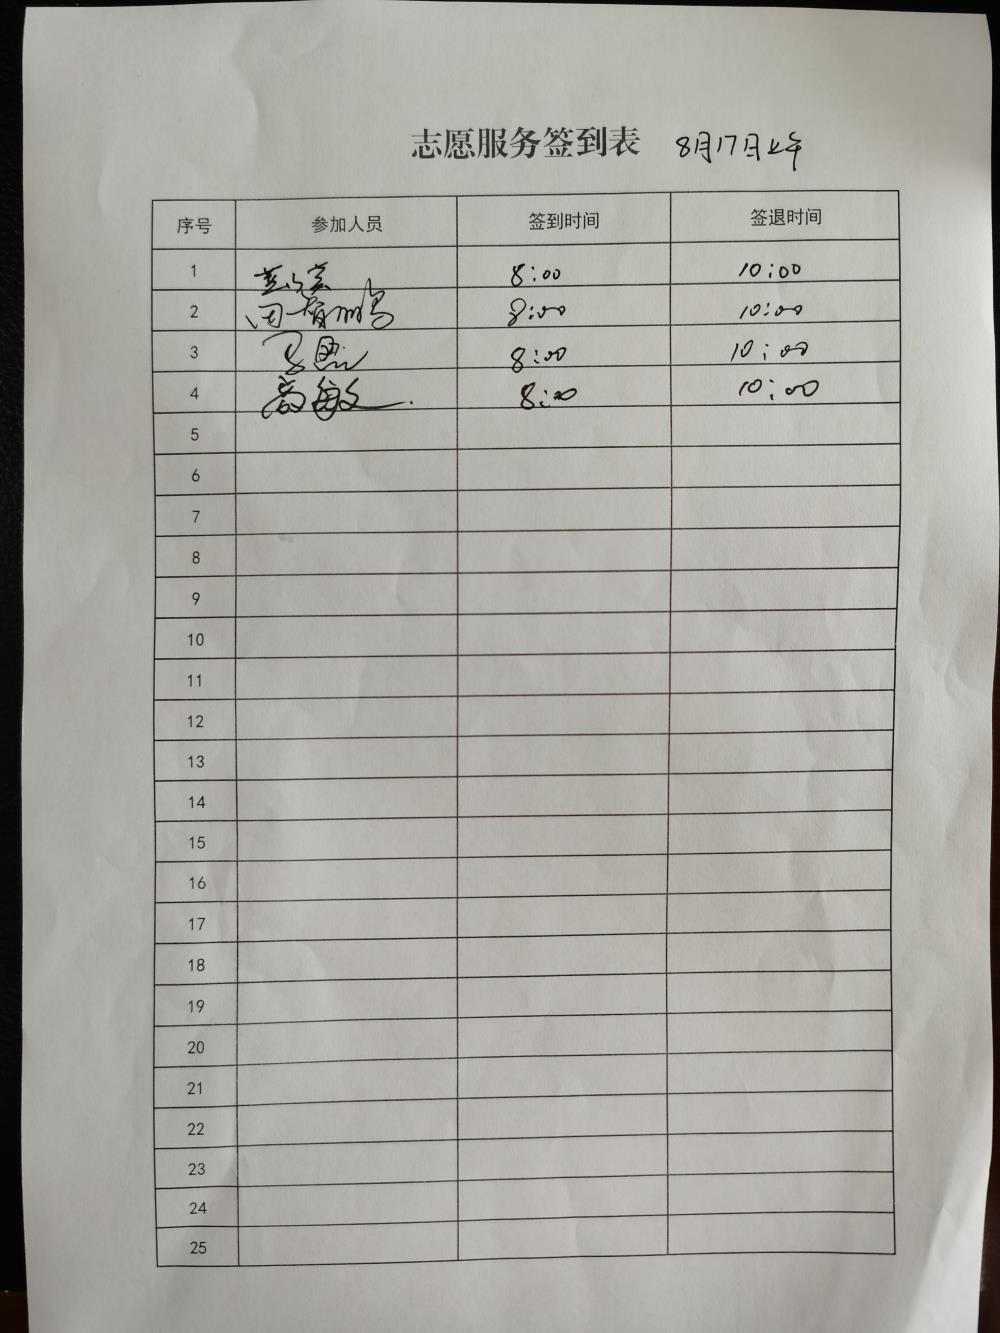 志愿服务签到表 8月17日上午
序号 参加人员 签到时间 签退时间
1 8:00 10:00
2 田有鹏 8:00 10:00
3 8:00 10:00
4 高敏 8:00 10:00
5
6
7
8
9
10
11
12
13
14
15
16
17
18
19
20
21
22
23
24
25